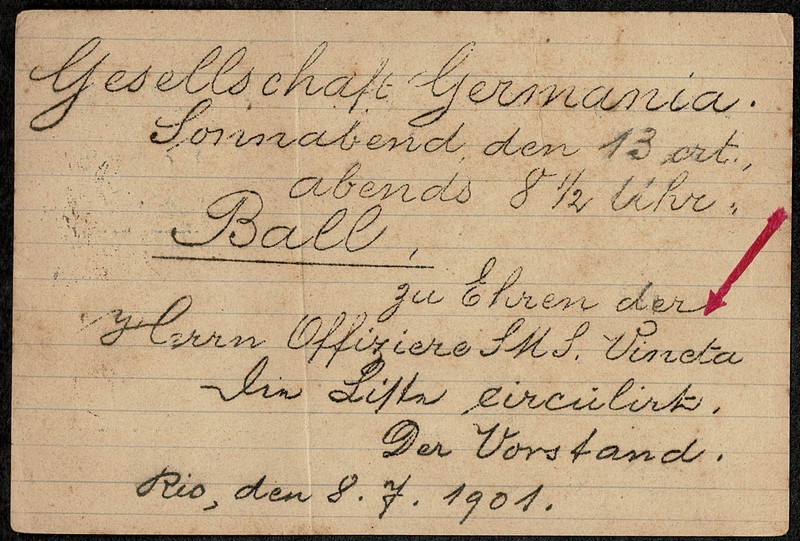 Gesellschaft Germania.
Sonnabend, den 13 crt.,
abends 8 1/2 Uhr.
Ball,
zu Ehren der
Herrn Offiziere S.M.S. Vineta
Die Liste circulirt.
Der Vorstand.
Rio, den 8. 7. 1901.